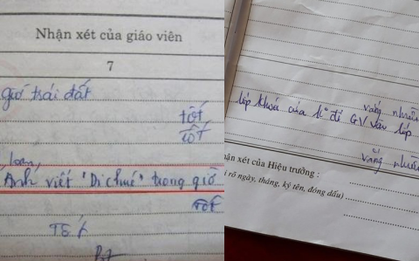 Nhận xét của giáo viên
7
giới trái đất
tốt
tốt
Loan,
Anh viết "Di chúc" trong giờ
Tốt
Tốt
lớp khoá cửa k° đi GV vào lớp
vắng nhiều
vắng nhiều
ận xét của Hiệu trưởng :
rõ ngày, tháng, ký tên, đóng dấu)